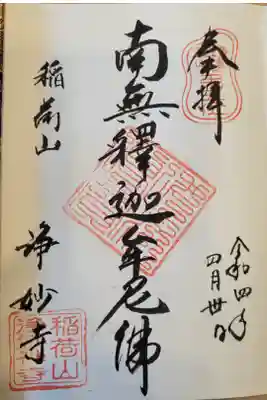 奉拝
令和四年
四月卅日
南無釋迦牟尼佛
稲荷山
浄妙寺
稲荷山
浄妙寺